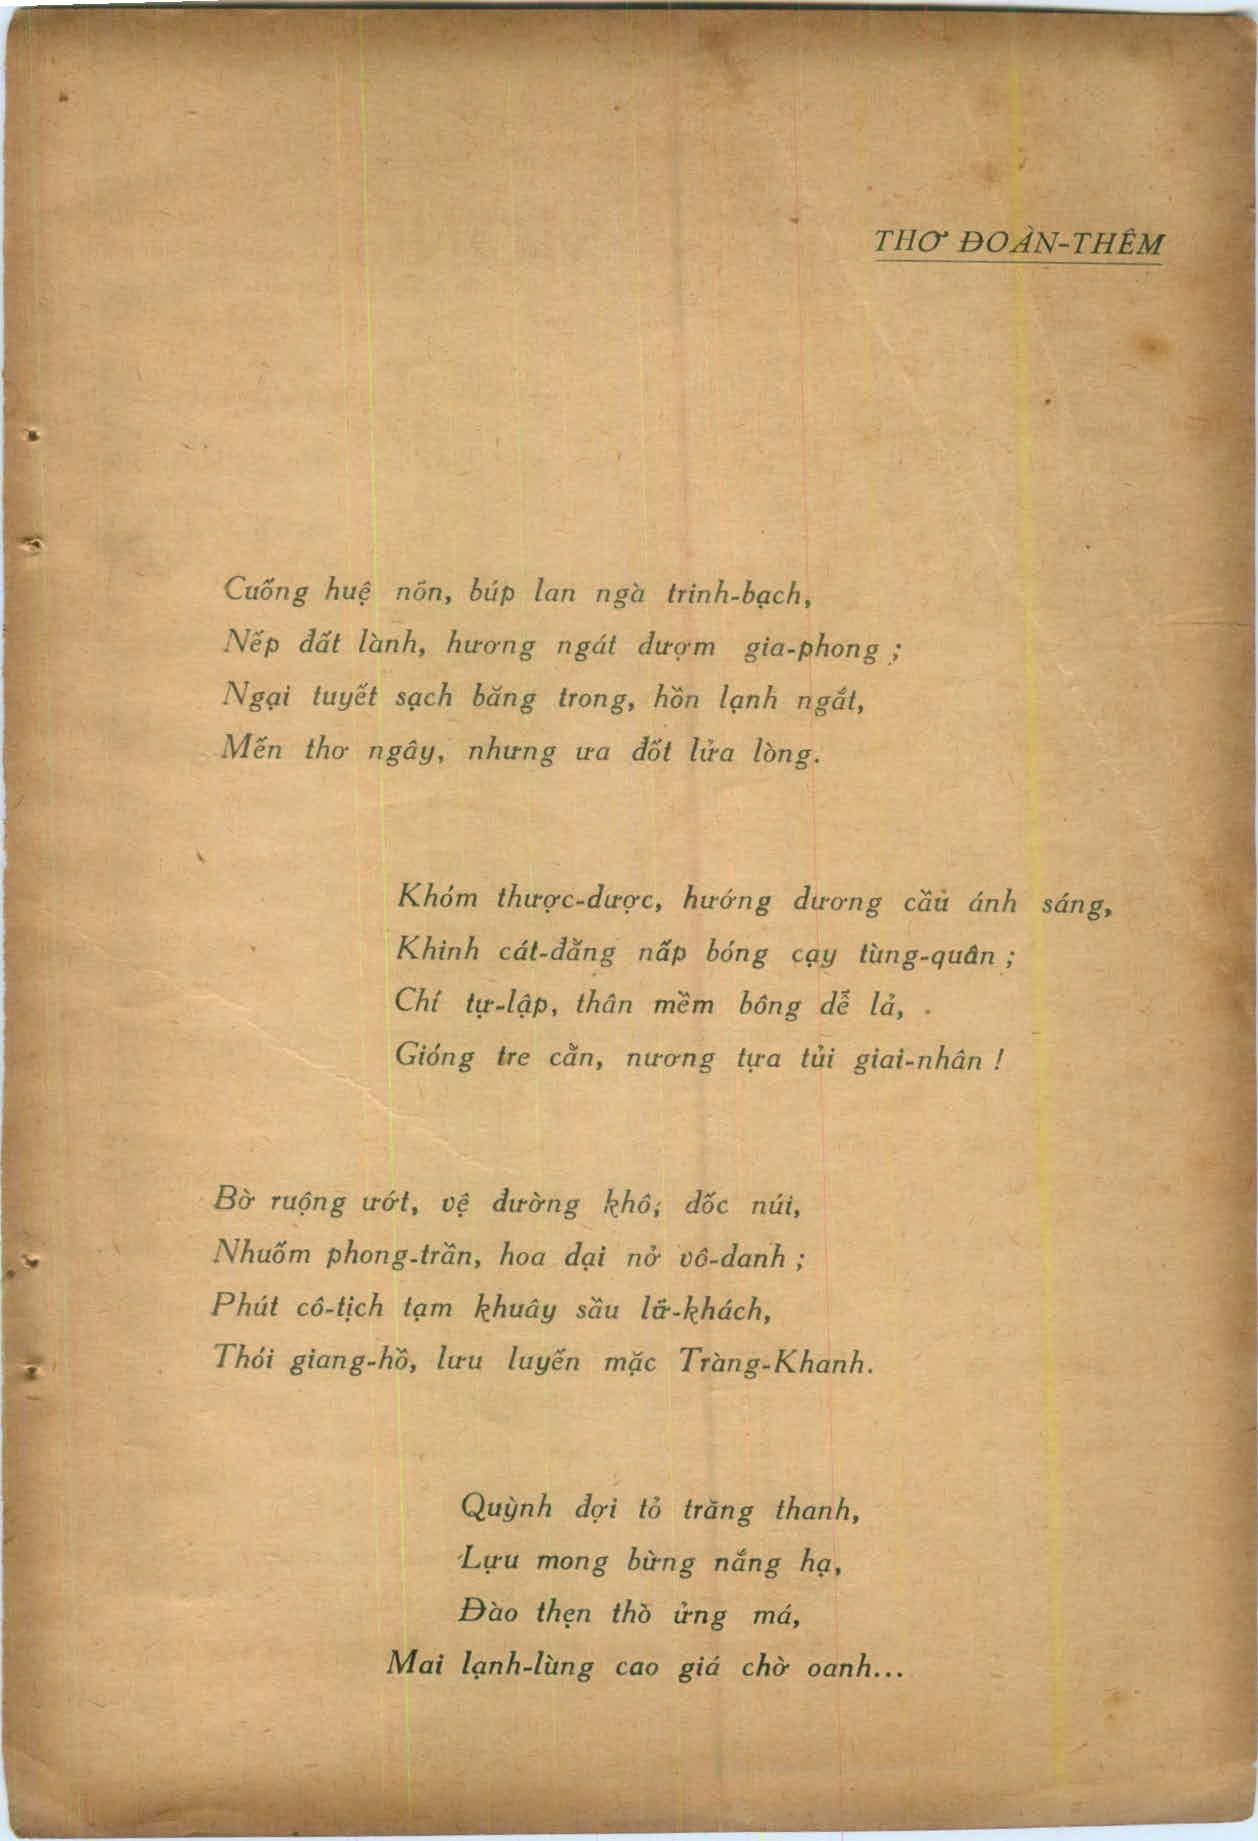 THƠ ĐOÀN-THÊM
Cuống huệ nõn, búp lan ngà trinh-bạch,
Nếp đất lành, hương ngát đượm gia-phong ;
Ngại tuyết sạch băng trong, hồn lạnh ngắt,
Mến thơ ngây, nhưng ưa đốt lửa lòng.
Khóm thược-dược, hướng dương cầu ánh sáng,
Khinh cát-đằng nấp bóng cạy tùng-quân ;
Chí tự-lập, thân mềm bông dễ lả,
Gióng tre cằn, nương tựa tủi giai-nhân !
Bờ ruộng ướt, vệ đường khô, dốc núi,
Nhuốm phong-trần, hoa dại nở vô-danh ;
Phút cô-tịch tạm khuây sầu lữ-khách,
Thói giang-hồ, lưu luyến mặc Tràng-Khanh.
Quỳnh đợi tỏ trăng thanh,
Lựu mong bừng nắng hạ,
Đào thẹn thò ửng má,
Mai lạnh-lùng cao giá chờ oanh...